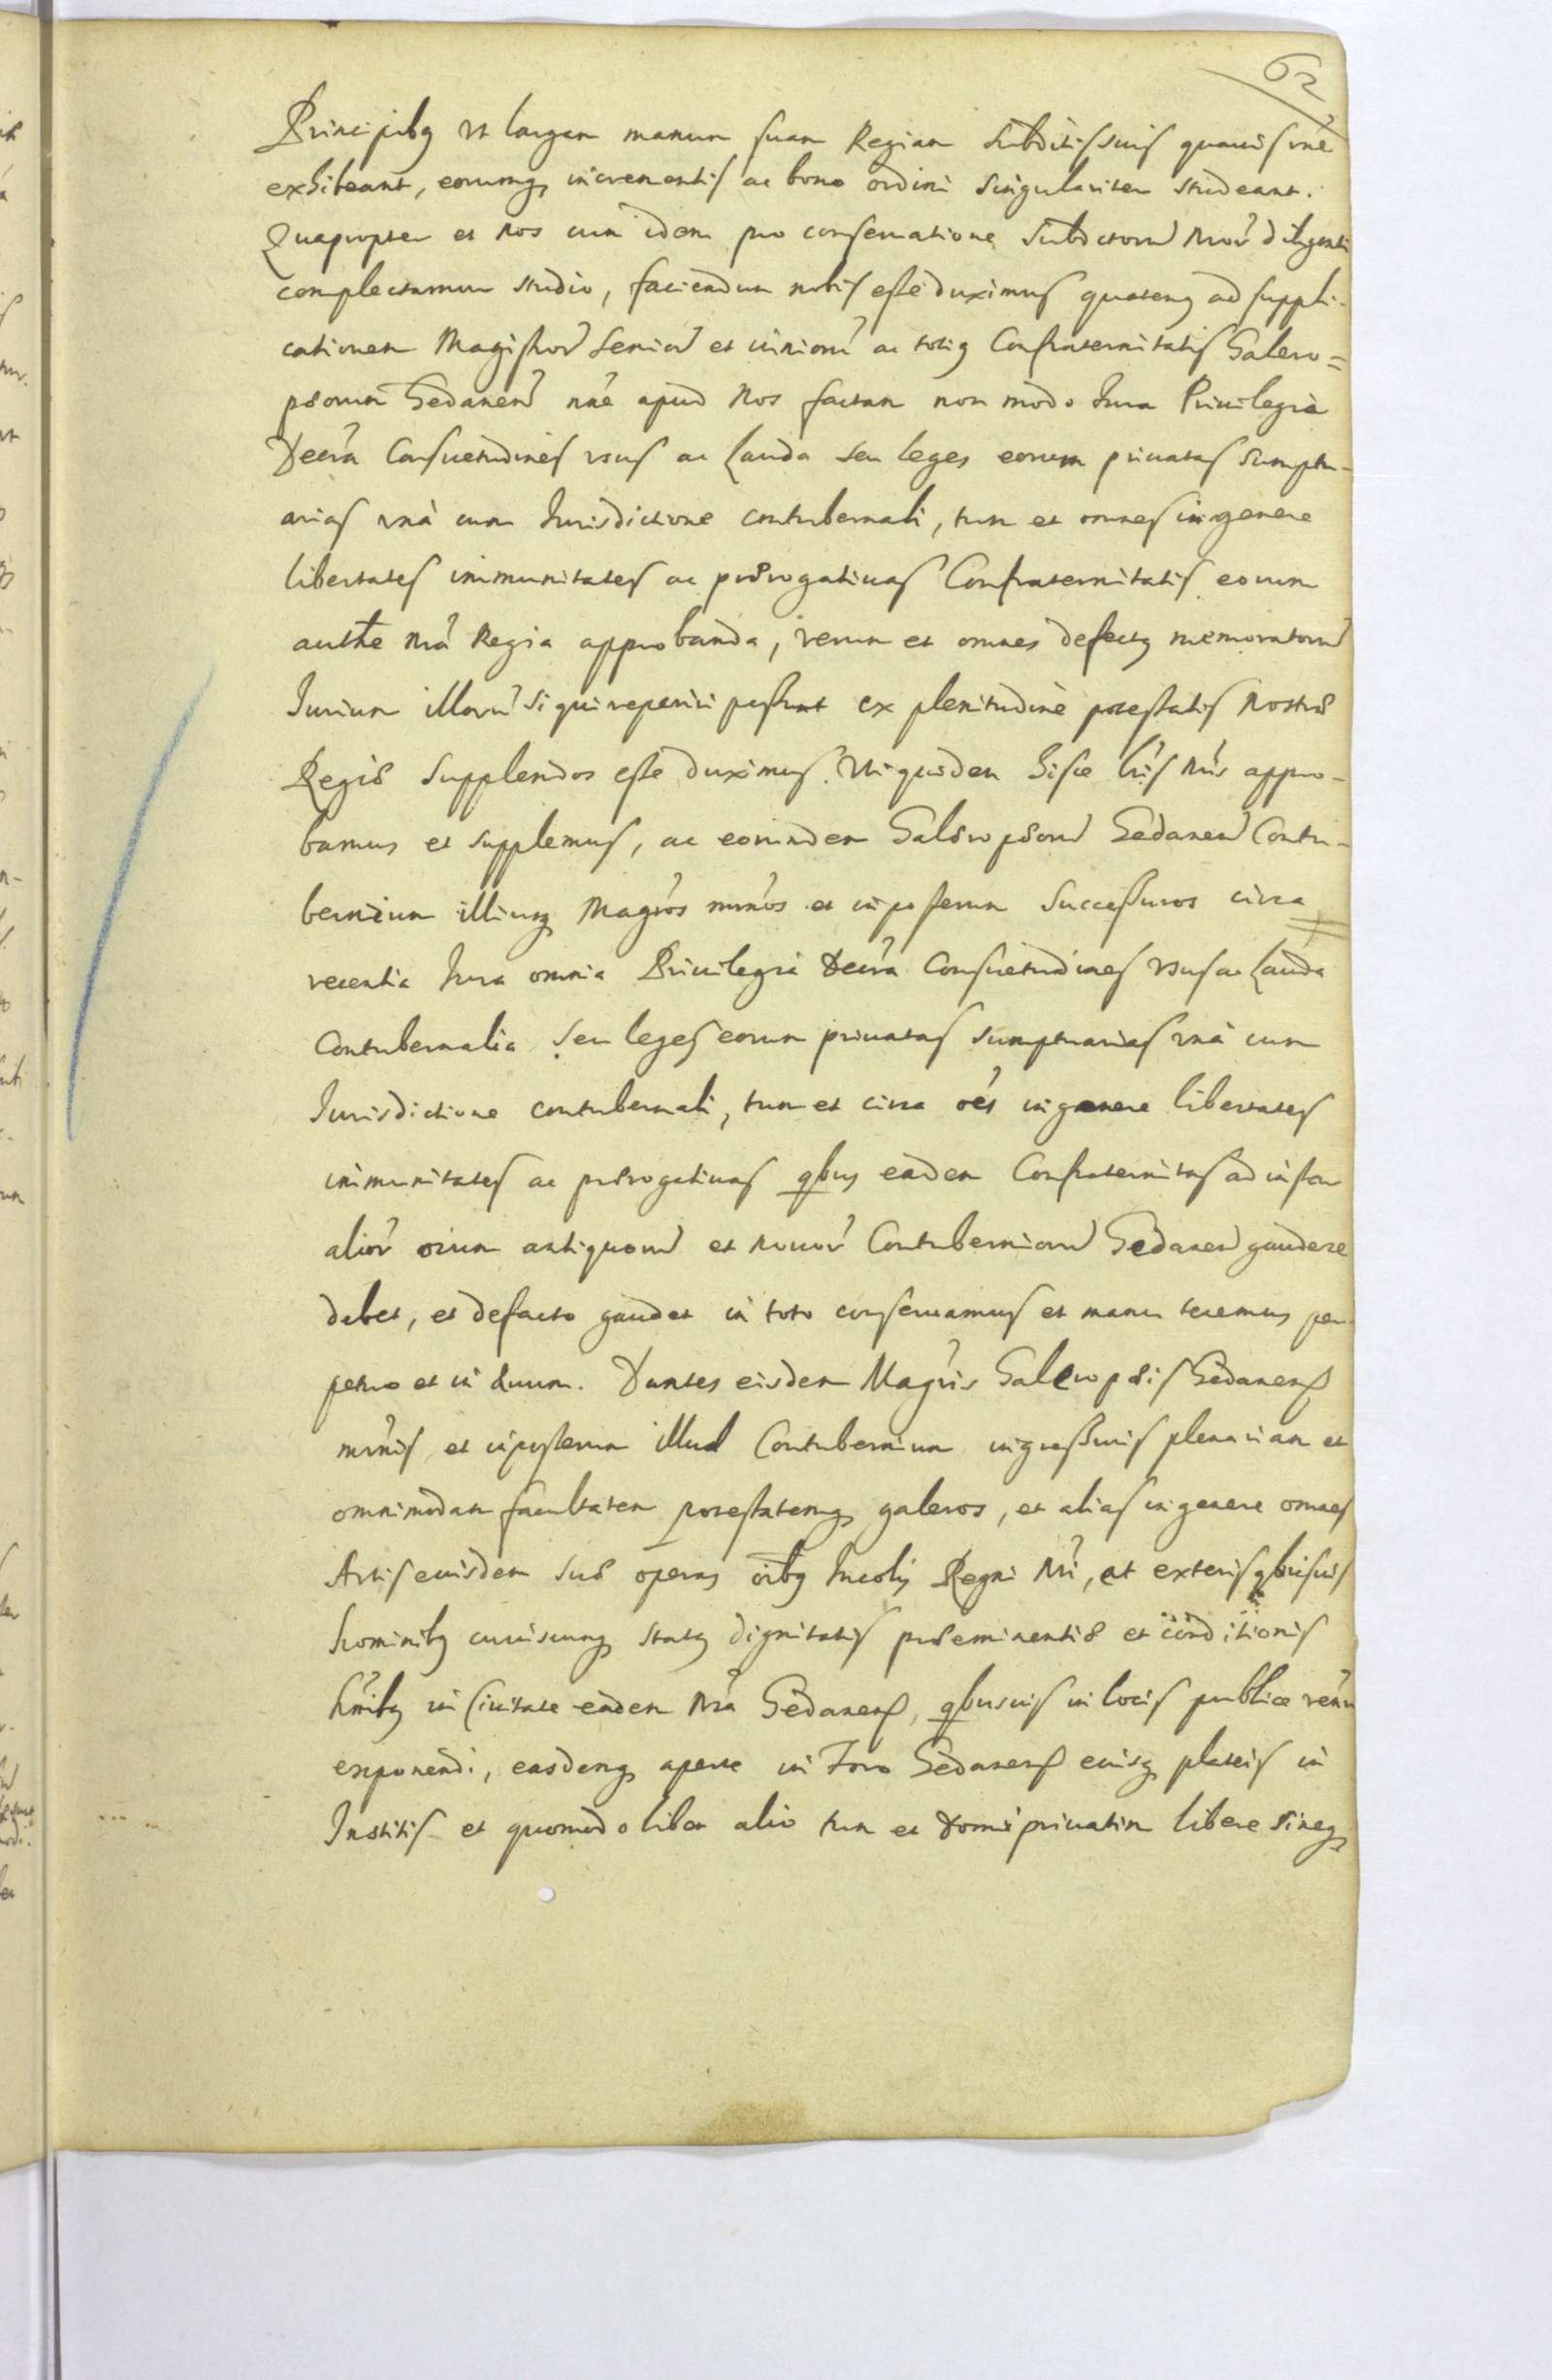 62
Principibq vt largam manum suam Regiam Subditis suis quauis rñe
exhibeant, eorumq incrementis ac bono ordini singulariter studeant.
Quapropter et Nos cum idem pro conseruatione Subditoru Nror diligenti
complectamur studio, faciendum nobis esse duximus quatenq ad suppli-
cationem Magistror Senior et iunioru ac totiq Confraternitatis Galero=
pæorum Gedanen nñe apud Nos factam non modo Iura Priuilegia
Decrã Consuetudines vsus ac Lauda seu leges eorum priuatas sumptu-
arias vnà cum Iurisdictione contubernali, tum et omnes in genere
libertates immunitates ac prærogatiuas Confraternitatis eorum
authte Nrã Regia approbanda, verum et omnes defectq memoratoru
Iurium illoru si qui reperiri possunt ex plenitudine potestatis Nostræ
Regiæ supplendos esse duximus. Uti quidem hisce lris Nris appro-
bamus et supplemus, ac eorundem Galeropæoru Gedanen Contu-
bernium illiusq Magros mrnos et inposterum successuros circa
recentia Iura omnia Priuilegia Decrã Consuetudines vsus ac Lauda
Contubernalia seu leges eorum priuatas sumptuarias vnà cum
Iurisdictione contubernali, tum et circa oẽs in genere libertates
immunitates ac prærogatiuas qbus eadem Confraternitas ad instar
alior oium antiquoru et nouor Contubernioru Gedanen gaudere
debet, et de facto gaudet in toto conseruamus et manu tenemus per-
petuo et in æuum. Dantes eisdem Magris Galeropæis Gedanens
mrnis et inposterum illud Contubernium ingressuris plenariam et
omnimodam facultatem potestatemq galeros, et alias in genere omnes
Artis eiusdem suæ operas oibq Incolis Regni Nri, et exteris qbusuis
hominibq cuiuscunq statq dignitatis præeminentiæ et conditionis
hmibq in Ciuitate eadem Nra Gedanens, qbusuis in locis publice venu
exponendi, easdemq aperte in Foro Gedanens eiusq plateis in
Institis et quomodolibet alio tum et domi priuatim libere sineq